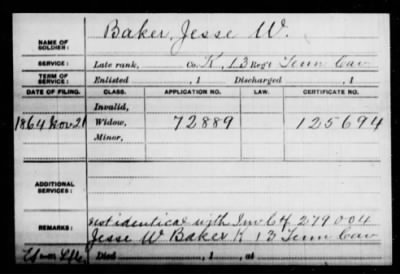 NAME OF SOLDIER: Baker, Jesse W.
SERVICE: Late rank, Co. K, 13 Reg't Tenn Cav
TERM OF SERVICE: Enlisted , 1 Discharged , 1
DATE OF FILING. CLASS. APPLICATION NO. LAW. CERTIFICATE NO.
Invalid,
1864 Nov 21 Widow, 72889 125694
Minor,
ADDITIONAL SERVICES:
REMARKS: not identical with Inv Ctf 279004
Jesse W Baker K 13 Tenn Cav
Died , 1 , at